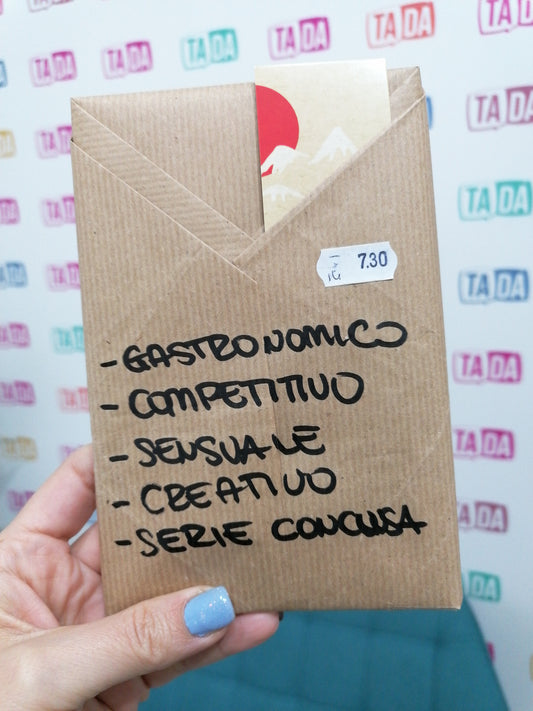 TADA
TADA
TADA
TADA
TADA
TADA
TADA
TADA
TADA
TADA
TADA
TADA
TADA
TADA
7.30
- GASTRONOMICO
- COMPETITIVO
- SENSUALE
- CREATIVO
- SERIE CONCLUSA